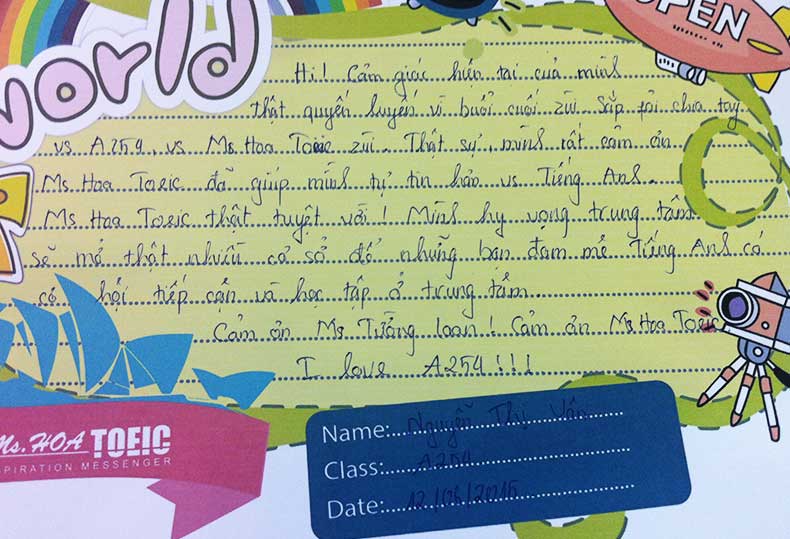 OPEN
world
Hi! Cảm giác hiện tại của mình
thật quyến luyến vì buổi cuối zùi. Sắp fải chia tay
vs A254, vs Ms. Hoa Toeic zùi. Thật sự, mình rất cảm ơn
Ms Hoa Toeic đã giúp mình tự tin hơn vs Tiếng Anh.
Ms Hoa Toeic thật tuyệt vời! Mình hy vọng trung tâm
sẽ mở thật nhiều cơ sở để những bạn đam mê Tiếng Anh có
cơ hội tiếp cận và học tập ở trung tâm.
Cảm ơn Ms Tường Loan! Cảm ơn Ms Hoa Toeic
I love A254!!!
Ms. HOA TOEIC
SPIRATION MESSENGER
Name: Nguyễn Thị Vân
Class: A254
Date: 12/08/2015